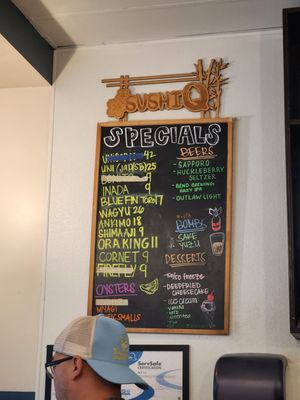 SUSHIQ
SPECIALS
42
UNI (JAPN) 25
9
INADA 9
BLUEFIN TORO 17
WAGYU 26
ANKIMO 18
SHIMAAJI 9
ORA KING 11
CORNET 9
FIREFLY 9
OYSTERS
MIYAGI
KUMS SMALLS
BEERS
- SAPPORO
- HUCKLEBERRY
SELTZER
- BEND BREWING
HAZY IPA
- OUTLAW LIGHT
BOMBS
SAKE
YUZU
DESSERTS
FROYO FREEZE
DEEPFRIED
CHEESECAKE
ICE CREAM
ServSafe
CERTIFICATION